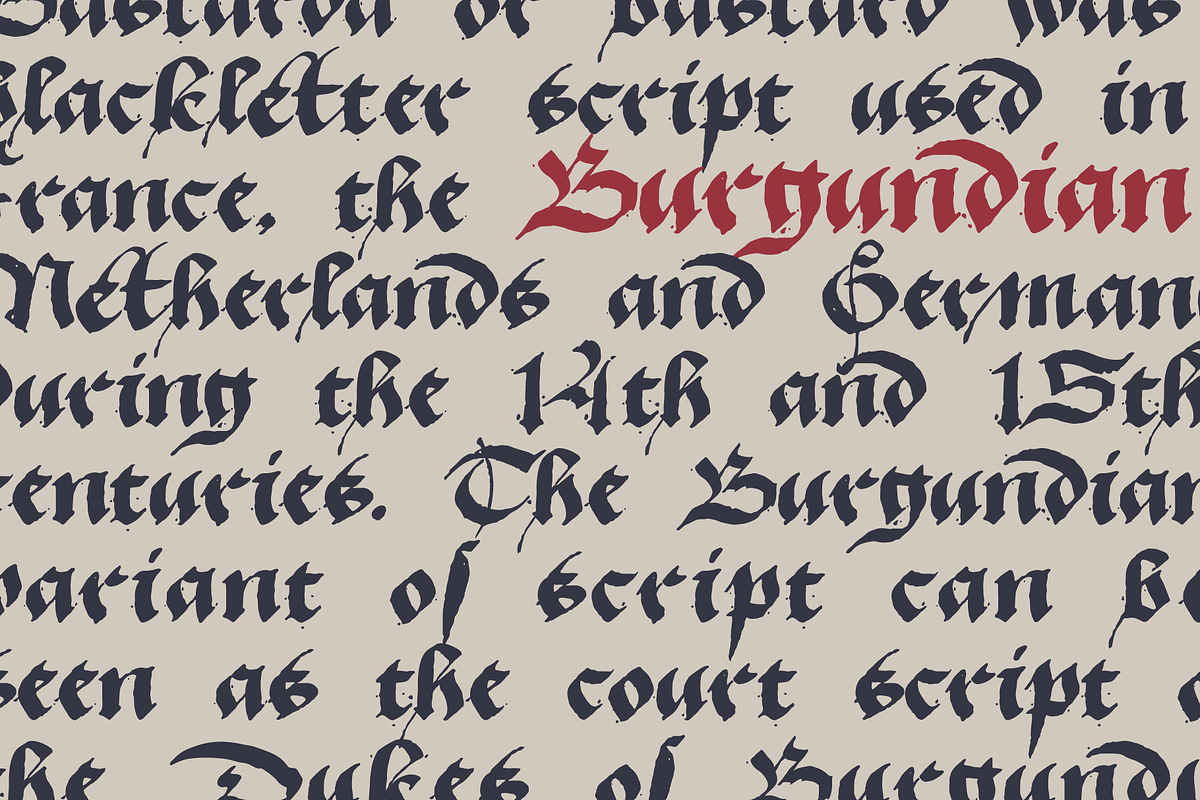 Bastarda or bastard was
blackletter script used in
France, the Burgundian
Netherlands and German
During the 14th and 15th
centuries. The Burgundian
variant of script can be
seen as the court script
the Dukes of Burgundy